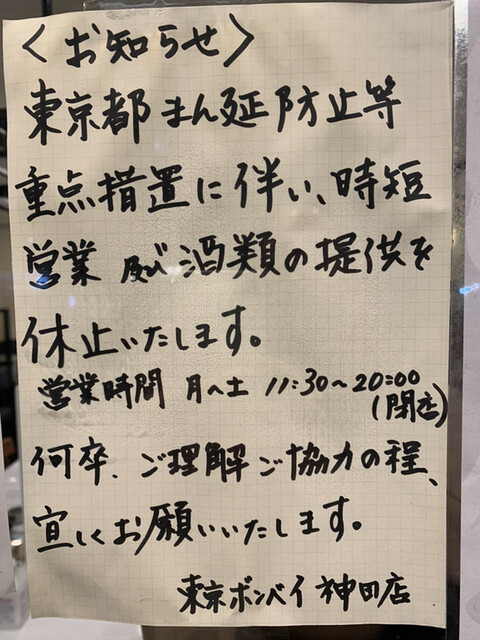 〈お知らせ〉
東京都まん延防止等
重点措置に伴い、時短
営業及び酒類の提供を
休止いたします。
営業時間 月〜土 11:30〜20:00
(閉店)
何卒、ご理解ご協力の程、
宜しくお願いいたします。
東京ボンベイ神田店